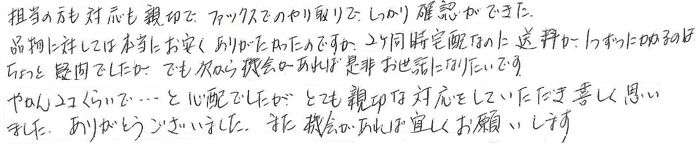 担当の方も対応も親切で、ファックスでのやり取りで、しっかり確認ができた。
品物に対しては本当にお安くありがたかったのですが、2ヶ同時宅配なのに送料が1つずつにかかるのは
ちょっと疑問でしたが、でも次から機会があれば是非お世話になりたいです
やかん2コくらいで…と心配でしたが、とても親切な対応をしていただき喜しく思い
ました。ありがとうございました。また機会があれば宜しくお願いします